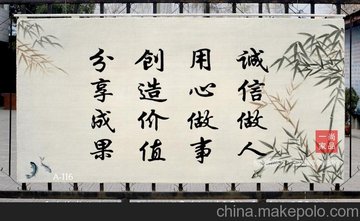 诚信做人
用心做事
创造价值
分享成果
尚品
一家
A-116
china.makepolo.com